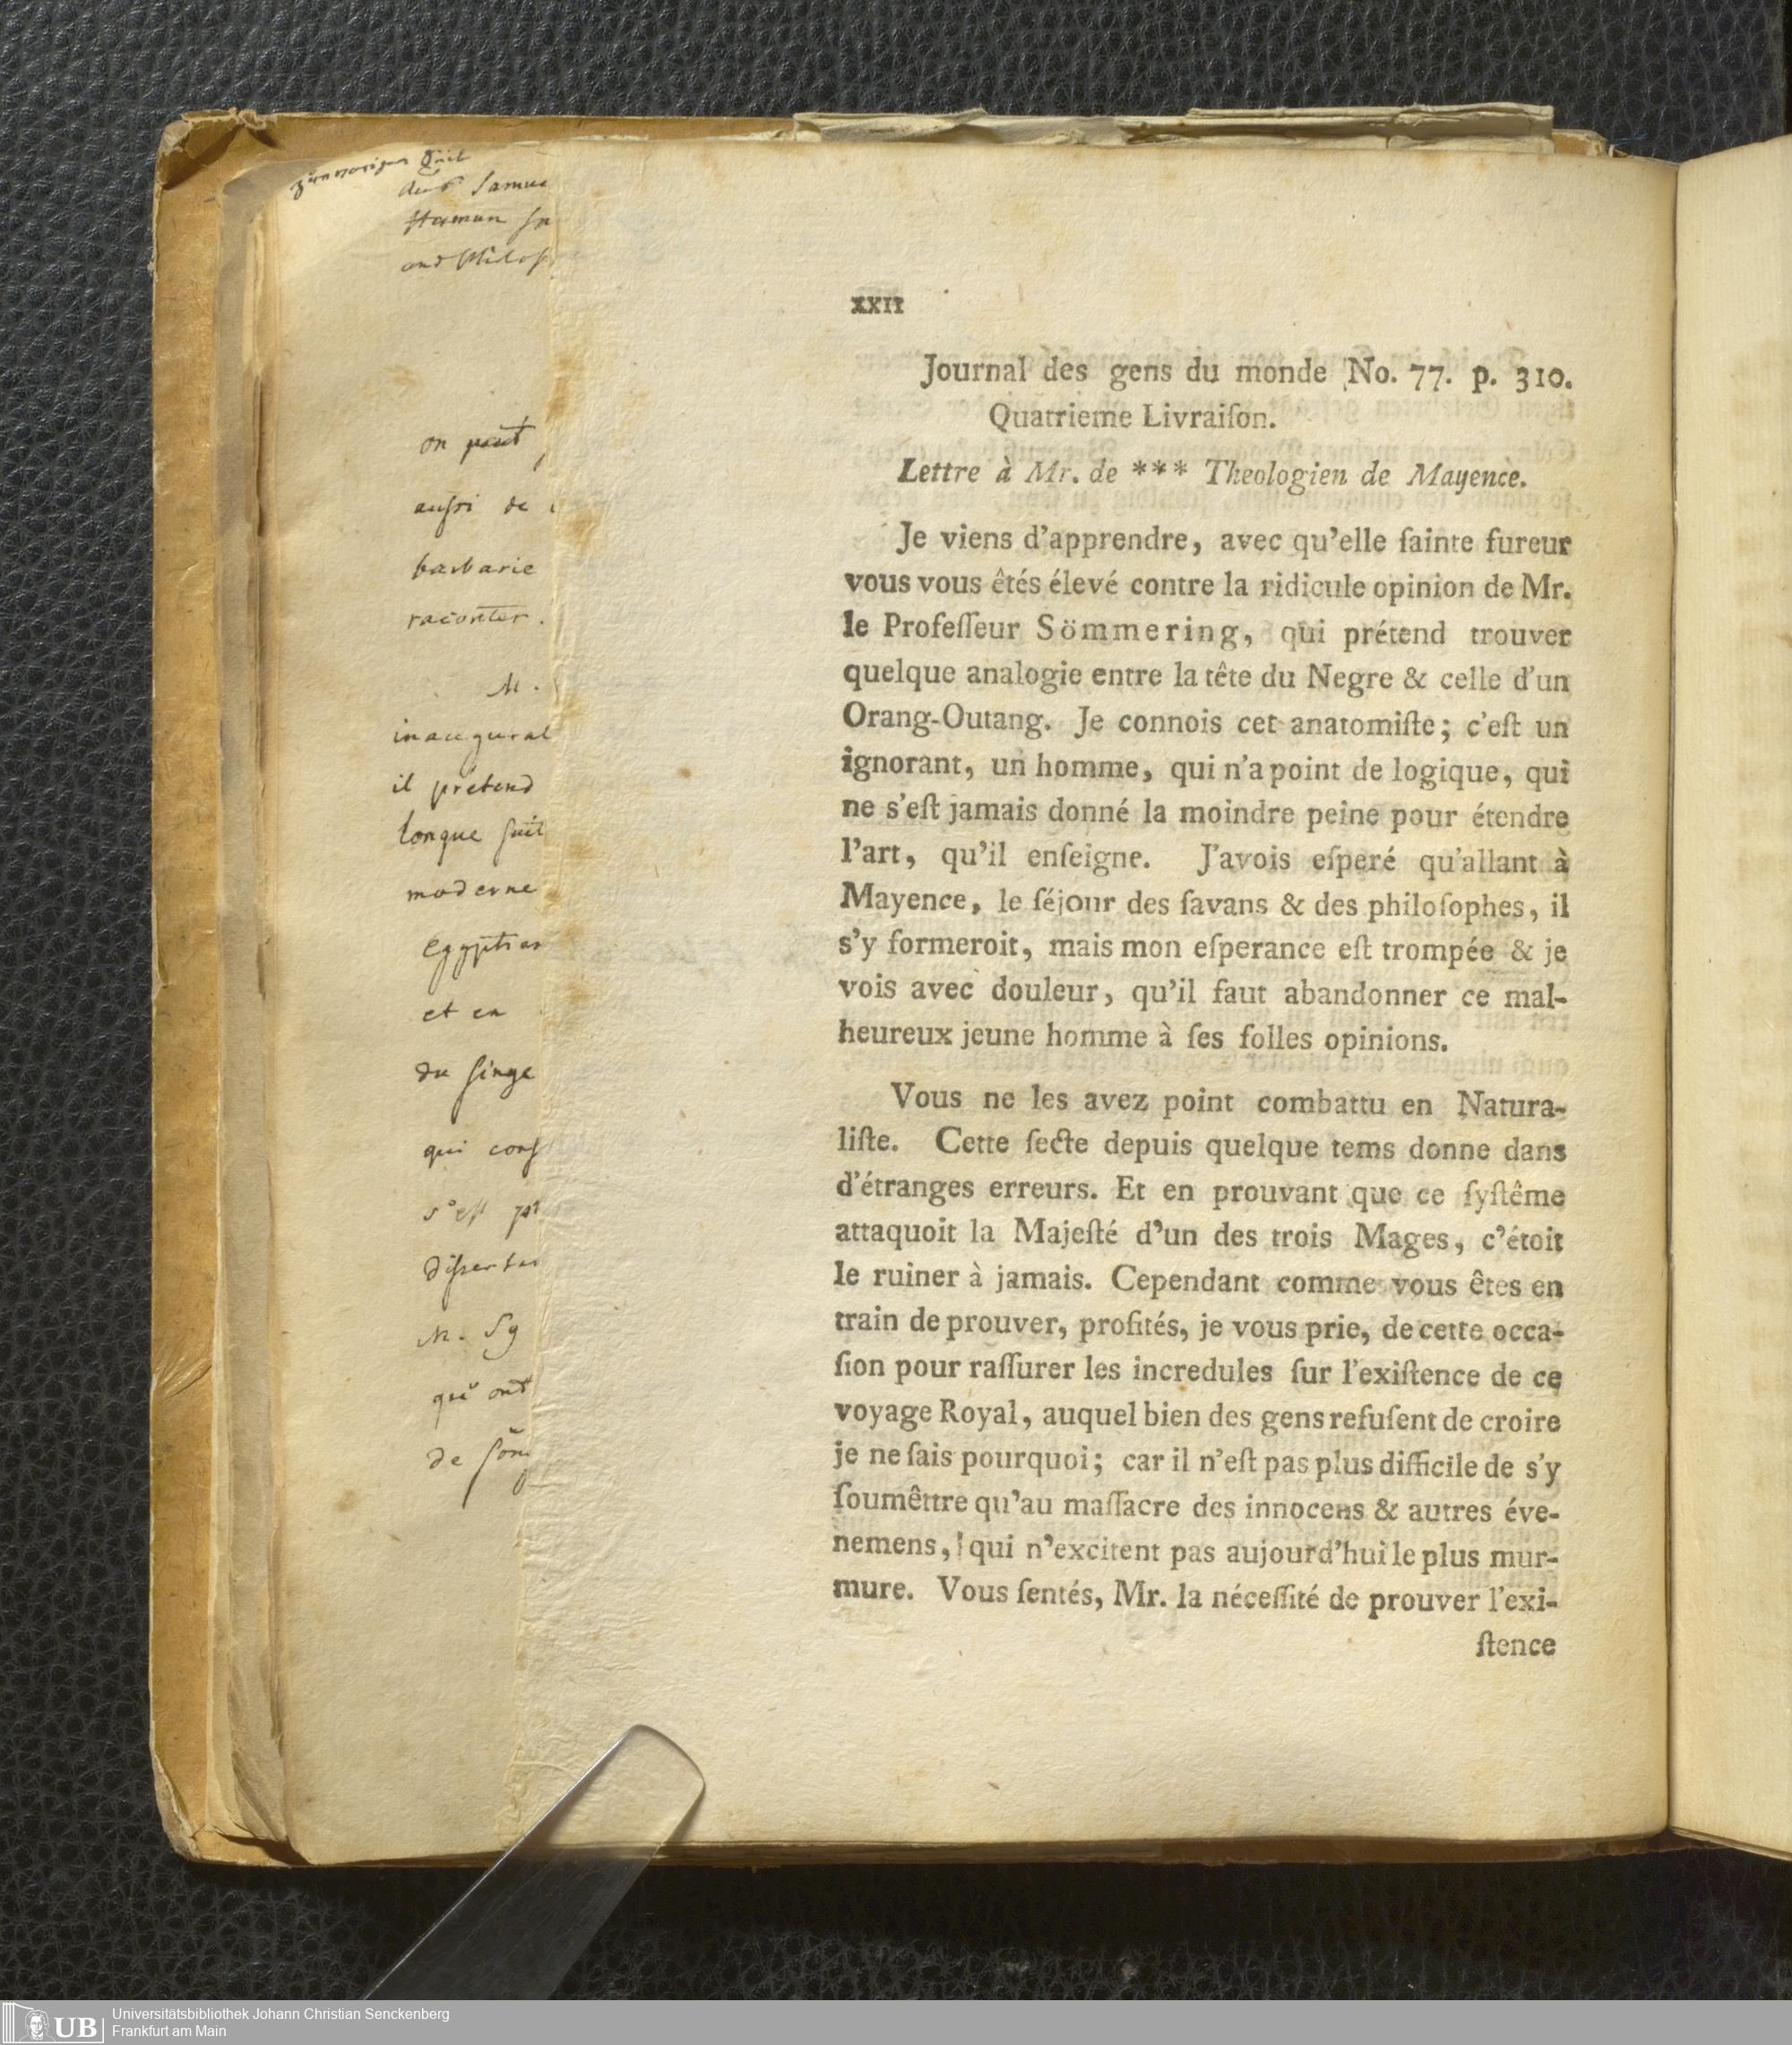 Samue
and Philos
on peut
aussi de
barbarie
raconter.
M.
inaugural
il prétend
longue suit
moderne
egyptian
et en
du singe
qui cons
s'est
dissertat
M.
qui ont
de Söm
XXII
Journal des gens du monde No. 77. p. 310.
Quatrieme Livraiſon.
Lettre à Mr. de *** Theologien de Mayence.
Je viens d'apprendre, avec qu'elle ſainte fureur
vous vous êtés élevé contre la ridicule opinion de Mr.
le Profeſſeur Sömmering, qui prétend trouver
quelque analogie entre la tête du Negre & celle d'un
Orang-Outang. Je connois cet anatomiſte; c'eſt un
ignorant, un homme, qui n'a point de logique, qui
ne s'eſt jamais donné la moindre peine pour étendre
l'art, qu'il enſeigne. J'avois eſperé qu'allant à
Mayence, le ſéjour des ſavans & des philoſophes, il
s'y formeroit, mais mon eſperance eſt trompée & je
vois avec douleur, qu'il faut abandonner ce mal-
heureux jeune homme à ſes folles opinions.
Vous ne les avez point combattu en Natura-
liſte. Cette ſecte depuis quelque tems donne dans
d'étranges erreurs. Et en prouvant que ce ſyſtême
attaquoit la Majeſté d'un des trois Mages, c'étoit
le ruiner à jamais. Cependant comme vous êtes en
train de prouver, profités, je vous prie, de cette occa-
ſion pour raſſurer les incredules ſur l'exiſtence de ce
voyage Royal, auquel bien des gens refuſent de croire
je ne ſais pourquoi; car il n'eſt pas plus difficile de s'y
ſoumêttre qu'au maſſacre des innocens & autres éve-
nemens, qui n'excitent pas aujourd'hui le plus mur-
mure. Vous ſentés, Mr. la néceſſité de prouver l'exi-
ſtence
UB
Universitätsbibliothek Johann Christian Senckenberg
Frankfurt am Main